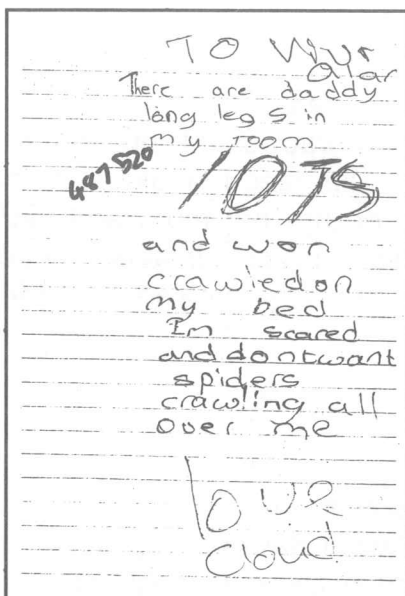 TO
There are daddy
lång leg s in
my room
487520
lOTS
and won
crawledon
my bed
Im scared
and dontwant
spiders
crawling all
over me
love
cloud